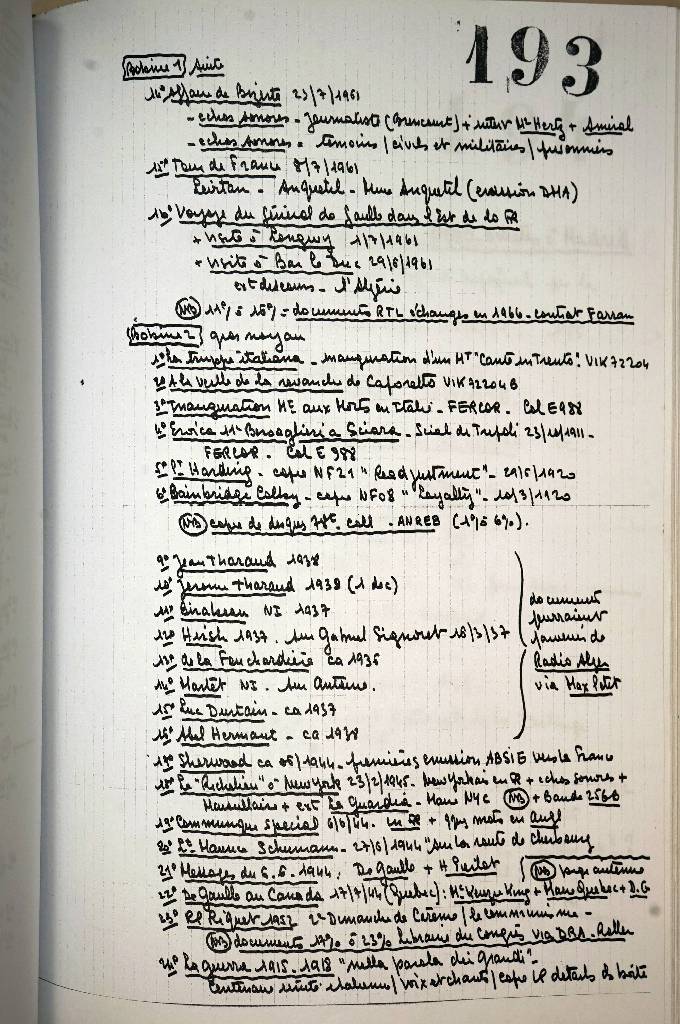 193
Bobine 1 suite
14° Affaire de Bizerte 23/7/1961
- echos sonores - Journaliste (Brencourt) + interv Mr Hertz + Amiral
- echos sonores = temoins / civils et militaires / prisonniers
15° Tour de France 8/7/1961
Anquetil - Mme Anquetil (emission DMA)
16° Voyage du général de Gaulle dans l'Est de la FR
+ visite à Longwy 1/7/1961
+ visite à Bar le Duc 29/6/1961
ext discours - l'Algérie
NB 11°/ à 16°/ = documents RTL échanges en 1966 - contrat Farran
Bobine 2 gros noyau
1° La truppe italiana - inauguration d'un MT "Cante in Trento". VIK 72204
2° A la veille de la revanche de Caporetto VIK 72204 B
3° Inauguration ME aux Morts en Italie - FERCOR. Col E 988
4° Eroica 11° Bersaglieri a Sciara - Sciat de Tripoli 23/10/1911 -
FERCOR. Col E 988
5° Pt Harding - copie NF21 "Readjustment" - 29/6/1920
6° Bainbridge Colby - copie NF08 "Loyalty" - 10/3/1920
NB copie de disques 78t. coll. - ANREB (1°/ à 6°/).
9° Jean Tharaud 1938
10° Jerome Tharaud 1938 (1 doc)
11° Birabeau NI 1937
12° Hirsh 1937. sur Gabriel Signoret 18/3/37
13° de la Fouchardière ca 1935
14° Martet NI. sur Antoine.
15° Luc Durtain - ca 1937
16° Abel Hermant - ca 1938
documents
pourraient
provenir de
Radio Alger
via Max Petit
17° Sherwood ca 06/1944 - premières emission ABSIE vers la France
18° Le "Richelieu" à New York 23/2/1945 - New Yorkais en FR + echos sonores +
Marseillaise + ext La Guardia - Maire NYC NB + Bande 256B
19° Communique special 6/6/44. en FR + qques mots en angl
20° Lt Maurice Schumann - 27/6/1944 "sur la route de Cherbourg
21° Messages du 6.6.1944. De Gaulle + H Pierlot NB / antenne
22° De Gaulle au Canada 17/7/44 (Quebec): Mc Kenzie King + Maire Quebec + D.G
23° RP Riquet 1952 2e Dimanche de Carème / le communisme -
NB documents 17°/ à 23°/ Librairie du Congrès via DBA - Roller
24° La guerra 1915-1918 "nella parola dei grandi" -
Centenaire unité italienne / voix et chants / copie LP details ds boite